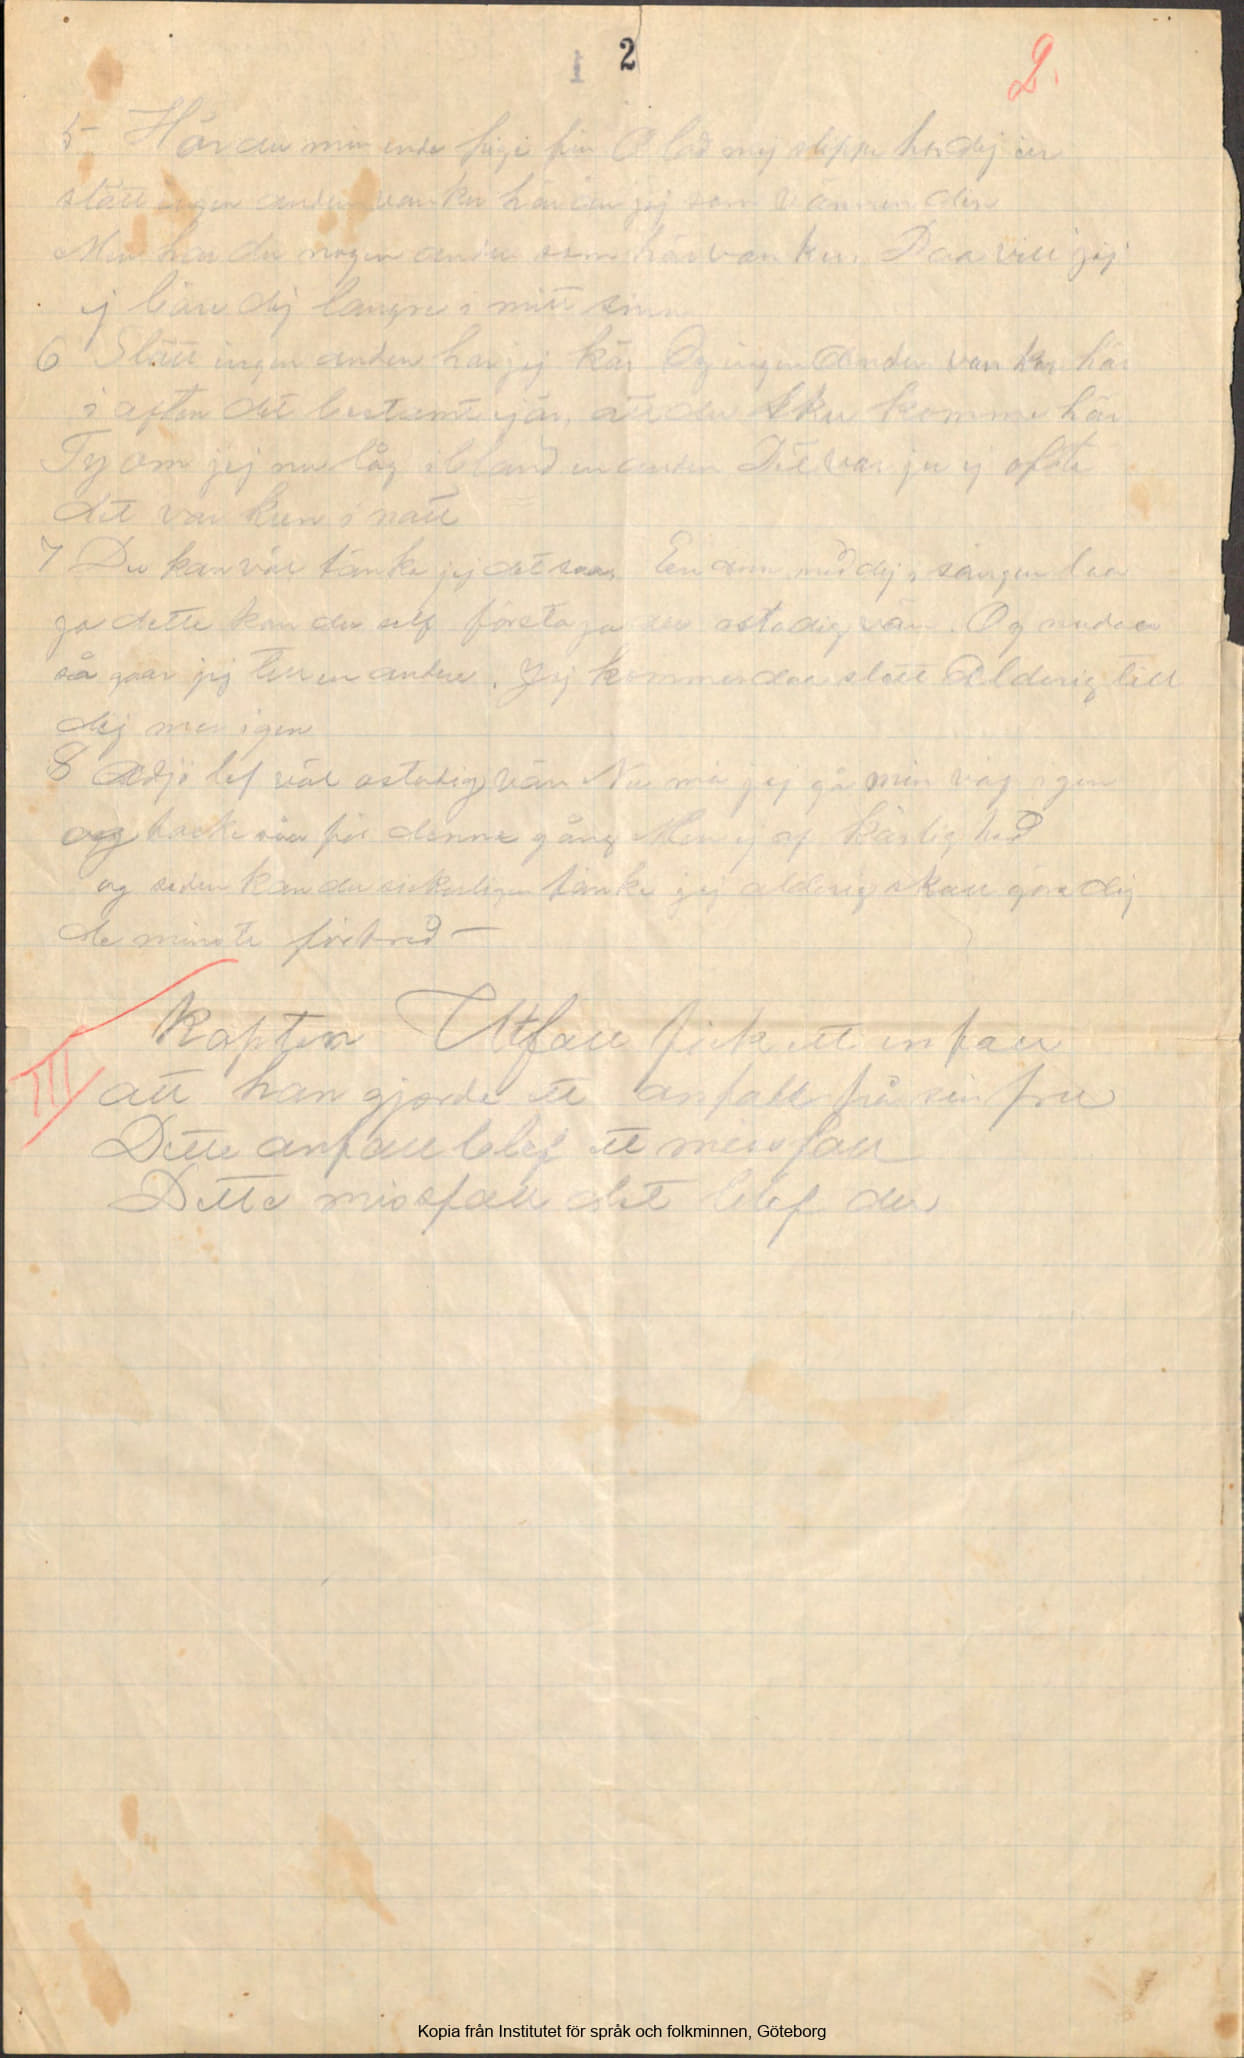 2
2.
5 Hör du min enda pige fin O lad mig slippe hos dej in
slätt ingen anden vanker här än jej som vännen din
Men har du nogen anden som här vanker. Daa vill jej
ej bäre dig längre i mitt sinn
6 Slätt ingen anden har jej kär Og ingen anden vanker här
i aften det bestemt ejär, att du sku komme här
Ty om jej nu låg ibland en anden Det var ju ej ofte
det var kun i natt
7 Du kan väl tänke jej det saa, En ann med dej i sängen laa
ja dette kan du self förstå ja du ostadig vän. Og nu daa
så gaar jej till en anden. Jej kommer daa slätt Alderig till
dig mer igen
8 Adjö lef väl ostadig vän Nu må jej gå min väg igen
og tacke såa för denne gång Men ej af kärlig hed
og seden kan du sickerligen tänke jej alderig skall göra dig
de minste förtred —
III
Kapten Utfall fick ett infall
att han gjorde ett anfall på sin fru
Dette anfall blef ett missfall
Dette missfall det blef du
Kopia från Institutet för språk och folkminnen, Göteborg